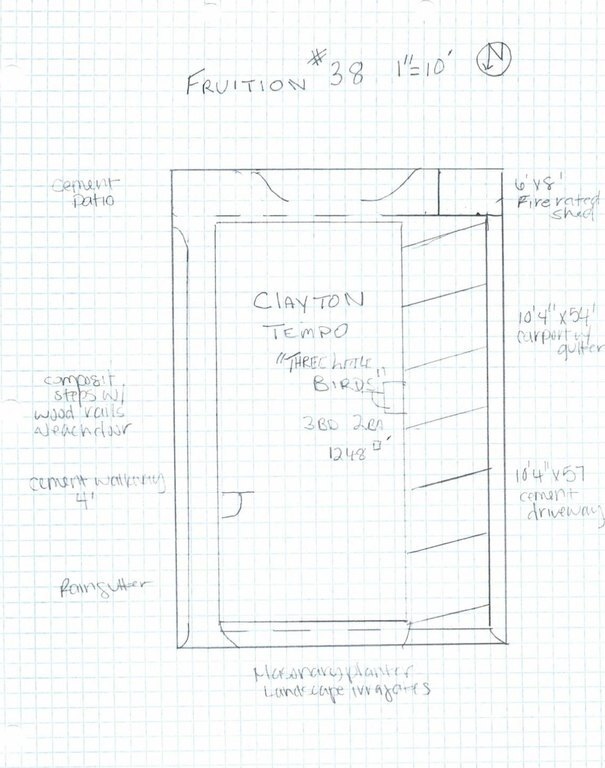 FRUITION #38 1"=10' N
Cement
Patio
6'x8'
Fire rated
shed
CLAYTON
TEMPO
"THREE LITTLE
BIRDS"
3BD 2BA
1248 □'
10'4"x54'
carport w/
gutter
composit
steps w/
wood rails
@ each door
cement walkway
4'
10'4"x57
cement
driveway
Raingutter
Masonary planter
Landscape irragates